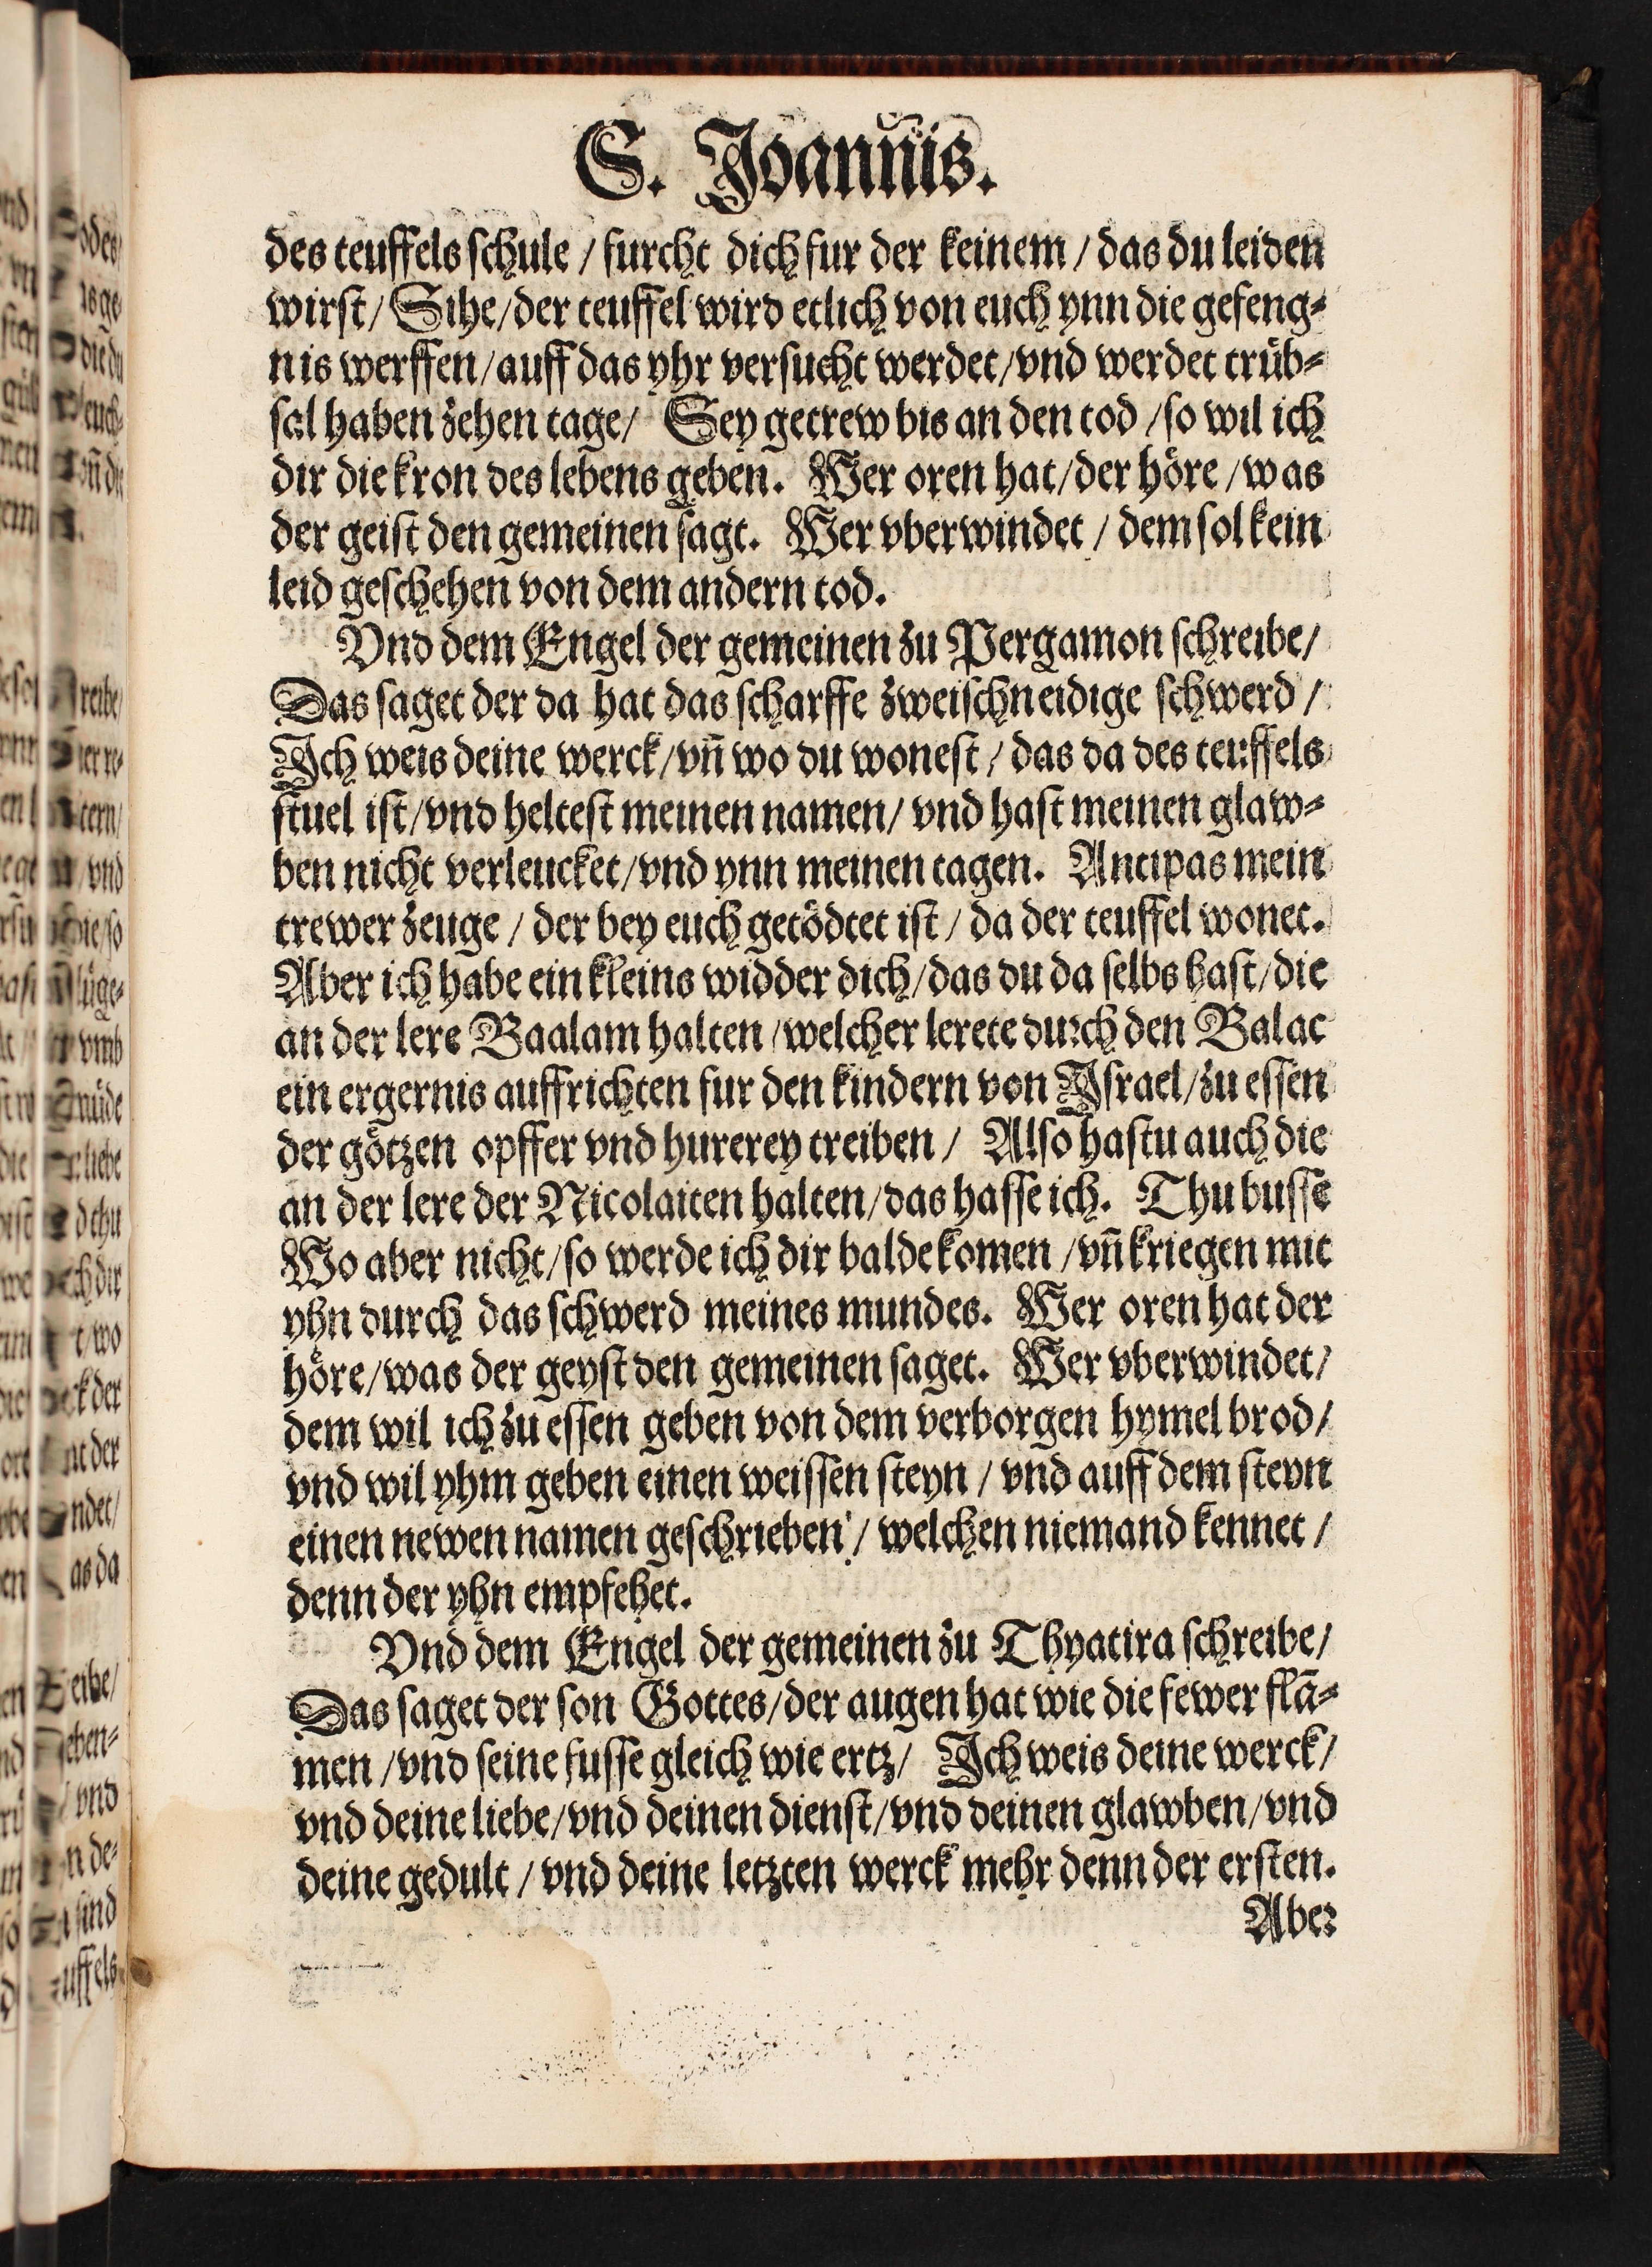 S. Joannis.
des teuffels schule / furcht dich fur der keinem / das du leiden
wirst / Sihe / der teuffel wird etlich von euch ynn die gefeng⸗
nis werffen / auff das yhr versucht werdet / vnd werdet trüb⸗
sal haben zehen tage / Sey getrew bis an den tod / so wil ich
dir die kron des lebens geben. Wer oren hat / der höre / was
der geist den gemeinen sagt. Wer vberwindet / dem sol kein
leid geschehen von dem andern tod.
Vnd dem Engel der gemeinen zu Pergamon schreibe /
Das saget der da hat das scharffe zweischneidige schwerd /
Ich weis deine werck / vn̄ wo du wonest / das da des teuffels
stuel ist / vnd heltest meinen namen / vnd hast meinen glaw⸗
ben nicht verleucket / vnd ynn meinen tagen. Antipas mein
trewer zeuge / der bey euch getödtet ist / da der teuffel wonet.
Aber ich habe ein kleins widder dich / das du da selbs hast / die
an der lere Baalam halten / welcher lerete durch den Balac
ein ergernis auffrichten fur den kindern von Israel / zu essen
der götzen opffer vnd hurerey treiben / Also hastu auch die
an der lere der Nicolaiten halten / das hasse ich. Thu busse
Wo aber nicht / so werde ich dir balde komen / vn̄ kriegen mit
yhn durch das schwerd meines mundes. Wer oren hat der
höre / was der geyst den gemeinen saget. Wer vberwindet /
dem wil ich zu essen geben von dem verborgen hymel brod /
vnd wil yhm geben einen weissen steyn / vnd auff dem steyn
einen newen namen geschrieben / welchen niemand kennet /
denn der yhn empfehet.
Vnd dem Engel der gemeinen zu Thyatira schreibe /
Das saget der son Gottes / der augen hat wie die fewer flā⸗
men / vnd seine fusse gleich wie ertz / Ich weis deine werck /
vnd deine liebe / vnd deinen dienst / vnd deinen glawben / vnd
deine gedult / vnd deine letzten werck mehr denn der ersten.
Aber